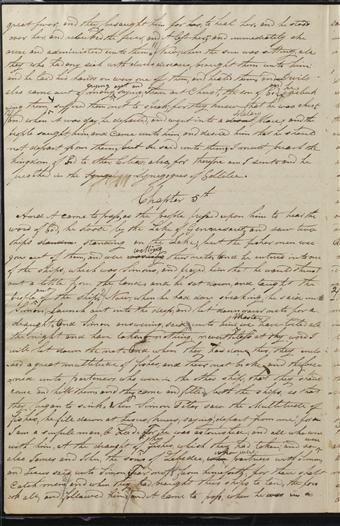 great fever, and they besought him for her, to heal her, and he stood
over her, and rebuked the fever, and it left her, and immediately she
arose and administered unto them, Now when the sun was setting, all
they who had any sick with diverse diseases, brought them unto him
and he laid his hands on every one of them and healed them, and devils
crying out and
also came out of many, saying, Thou art Christ, the son of God,
ing them suffered them not to speak, for they knew that he was christ
solitary
And when it was day, he departed, and went into a place, and the
people sought him, and came unto him, and desired him that he should
not depart from them, but he said unto them, I must preach the
kingdom of God to other cities also, for therefore am I sent, and he
preached in the Synagogues of Galilee
Chapter 5th
And it came to pass, as the people pressed upon him to hear the
word of God, he stood by the Lake of Gennesaret, and saw two
ships standing on the Lake, but the fisher men were
wetting
gone out of them, and were their nets, and he entered into one
of the ships, which was Simons, and prayed him that he would thrust
out a little from the land, and he sat down, and taught the
people out of the ship, Now, when he had done speaking, he said unto
Simon Launch out into the deep, and let down your nets for a
Master
draught, and Simon answering, said unto him, we have toiled all
the night, and have taken nothing, nevertheless at thy word I
will let down the net, And when they had done this, they enclo
sed a great multitude of fishes, and their net broke, and they beck
oned unto partners who were in the other ship, that they should
come and help them and they came and filled both the ships, so that
they began to sink, When Simon Peter saw the Multitude of
fishes, he fell down at Jesus knees, saying, depart from me, for
I am a sinful man, O Lord, for he was astonished, and all who were
with him, At the draught of fishes which they had taken, and
also James and John, the sons of Zebedee, who were partners with Simon
and Jesus said unto Simon, fear not from henceforth, for thou shalt
catch men, and when they had brought their ships to land, they fors
ook all, and followed him, and it came to pass, when he was in a